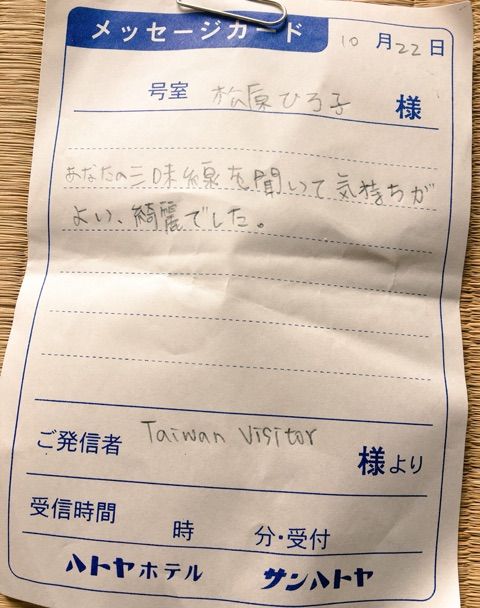 メッセージカード 10月22日
号室 松原ひろ子 様
あなたの三味線を聞いて気持ちが
よい、綺麗でした。
ご発信者 Taiwan Visitor 様より
受信時間 時 分・受付
ハトヤホテル サンハトヤ